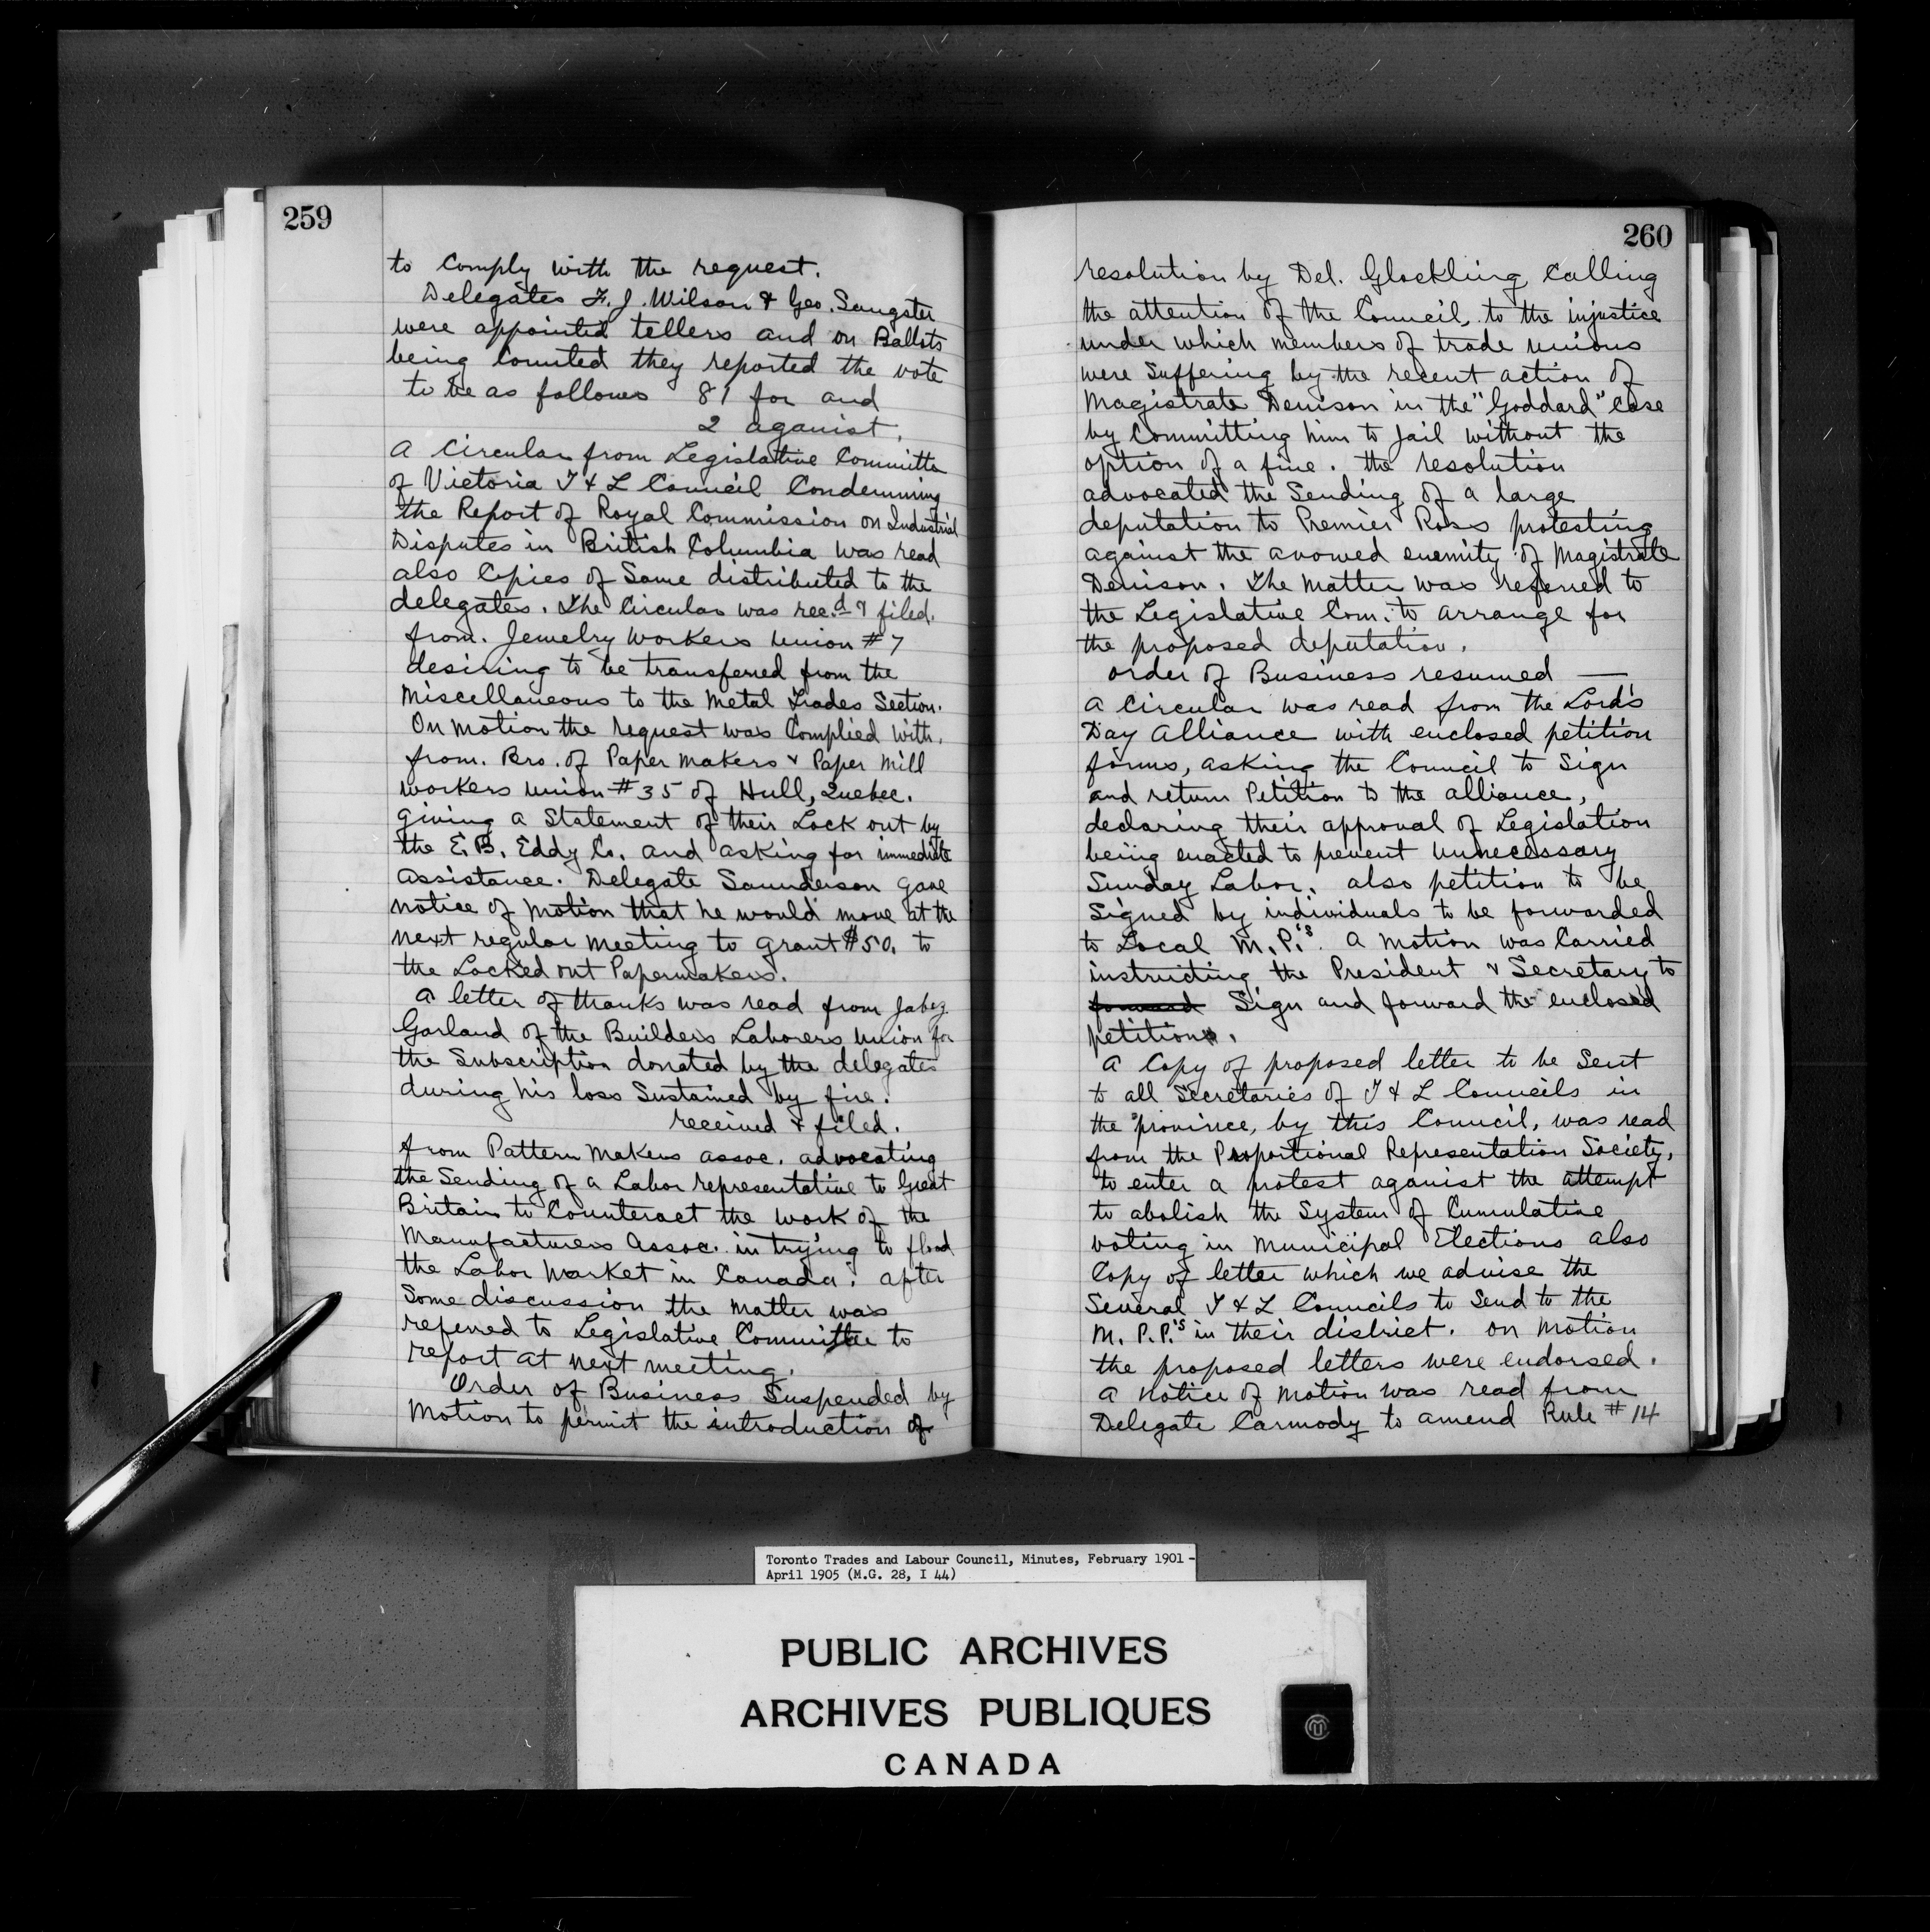 259
to Comply with the request.
Delegates F. J. Wilson & Geo. Sangster
were appointed tellers and on Ballots
being Counted they reported the vote
to be as follows 81 for and
2 against.
A Circular from Legislative Committee
of Victoria T & L Council Condemning
the Report of Royal Commission on Industrial
Disputes in British Columbia was read
also Copies of Same distributed to the
delegates. The Circular was rec.d & filed.
from. Jewelry Workers Union #7
desiring to be transferred from the
Miscellaneous to the Metal Trades Section.
On motion the request was Complied with.
from. Bro. of Paper Makers & Paper Mill
workers union #35 of Hull, Quebec.
giving a Statement of their Lock out by
the E. B. Eddy Co. and asking for immediate
assistance. Delegate Saunderson gave
notice of motion that he would move at the
next regular meeting to grant $50. to
the Locked out Papermakers.
A letter of thanks was read from Jabez
Garland of the Builders Laborers Union for
the Subscription donated by the delegates
during his loss Sustained by fire.
received & filed.
from Pattern Makers assoc. advocating
the Sending of a Labor representative to Great
Britain to Counteract the work of the
Manufacturers Assoc. in trying to flood
the Labor Market in Canada. after
Some discussion the matter was
referred to Legislative Committee to
report at next meeting.
Order of Business Suspended by
Motion to permit the introduction of
260
resolution by Del. Glockling Calling
the attention of the Council, to the injustice
under which members of trade unions
were Suffering by the recent action of
Magistrate Denison in the "Goddard" Case
by Committing him to Jail without the
option of a fine. the resolution
advocated the Sending of a large
deputation to Premier Ross protesting
against the avowed enemity of Magistrate
Denison. The Matter was referred to
the Legislative Com. to arrange for
the proposed deputation.
order of Business resumed —
A Circular was read from the Lord's
Day Alliance with enclosed petition
forms, asking the Council to Sign
and return Petition to the alliance,
declaring their approval of Legislation
being enacted to prevent Unnecessary
Sunday Labor. also petition to be
Signed by individuals to be forwarded
to Local M.P.'s. A motion was Carried
instructing the President & Secretary to
forward Sign and forward the enclosed
petition.
A Copy of proposed letter to be Sent
to all Secretaries of T & L Councils in
the province, by this Council, was read
from the Proportional Representation Society,
to enter a protest against the attempt
to abolish the System of Cumulative
voting in Municipal Elections also
Copy of letter which we advise the
Several T & L Councils to Send to the
M. P. P.'s in their district. on motion
the proposed letters were endorsed.
A notice of motion was read from
Delegate Carmody to amend Rule #14
Toronto Trades and Labour Council, Minutes, February 1901 -
April 1905 (M.G. 28, I 44)
PUBLIC ARCHIVES
ARCHIVES PUBLIQUES
CANADA